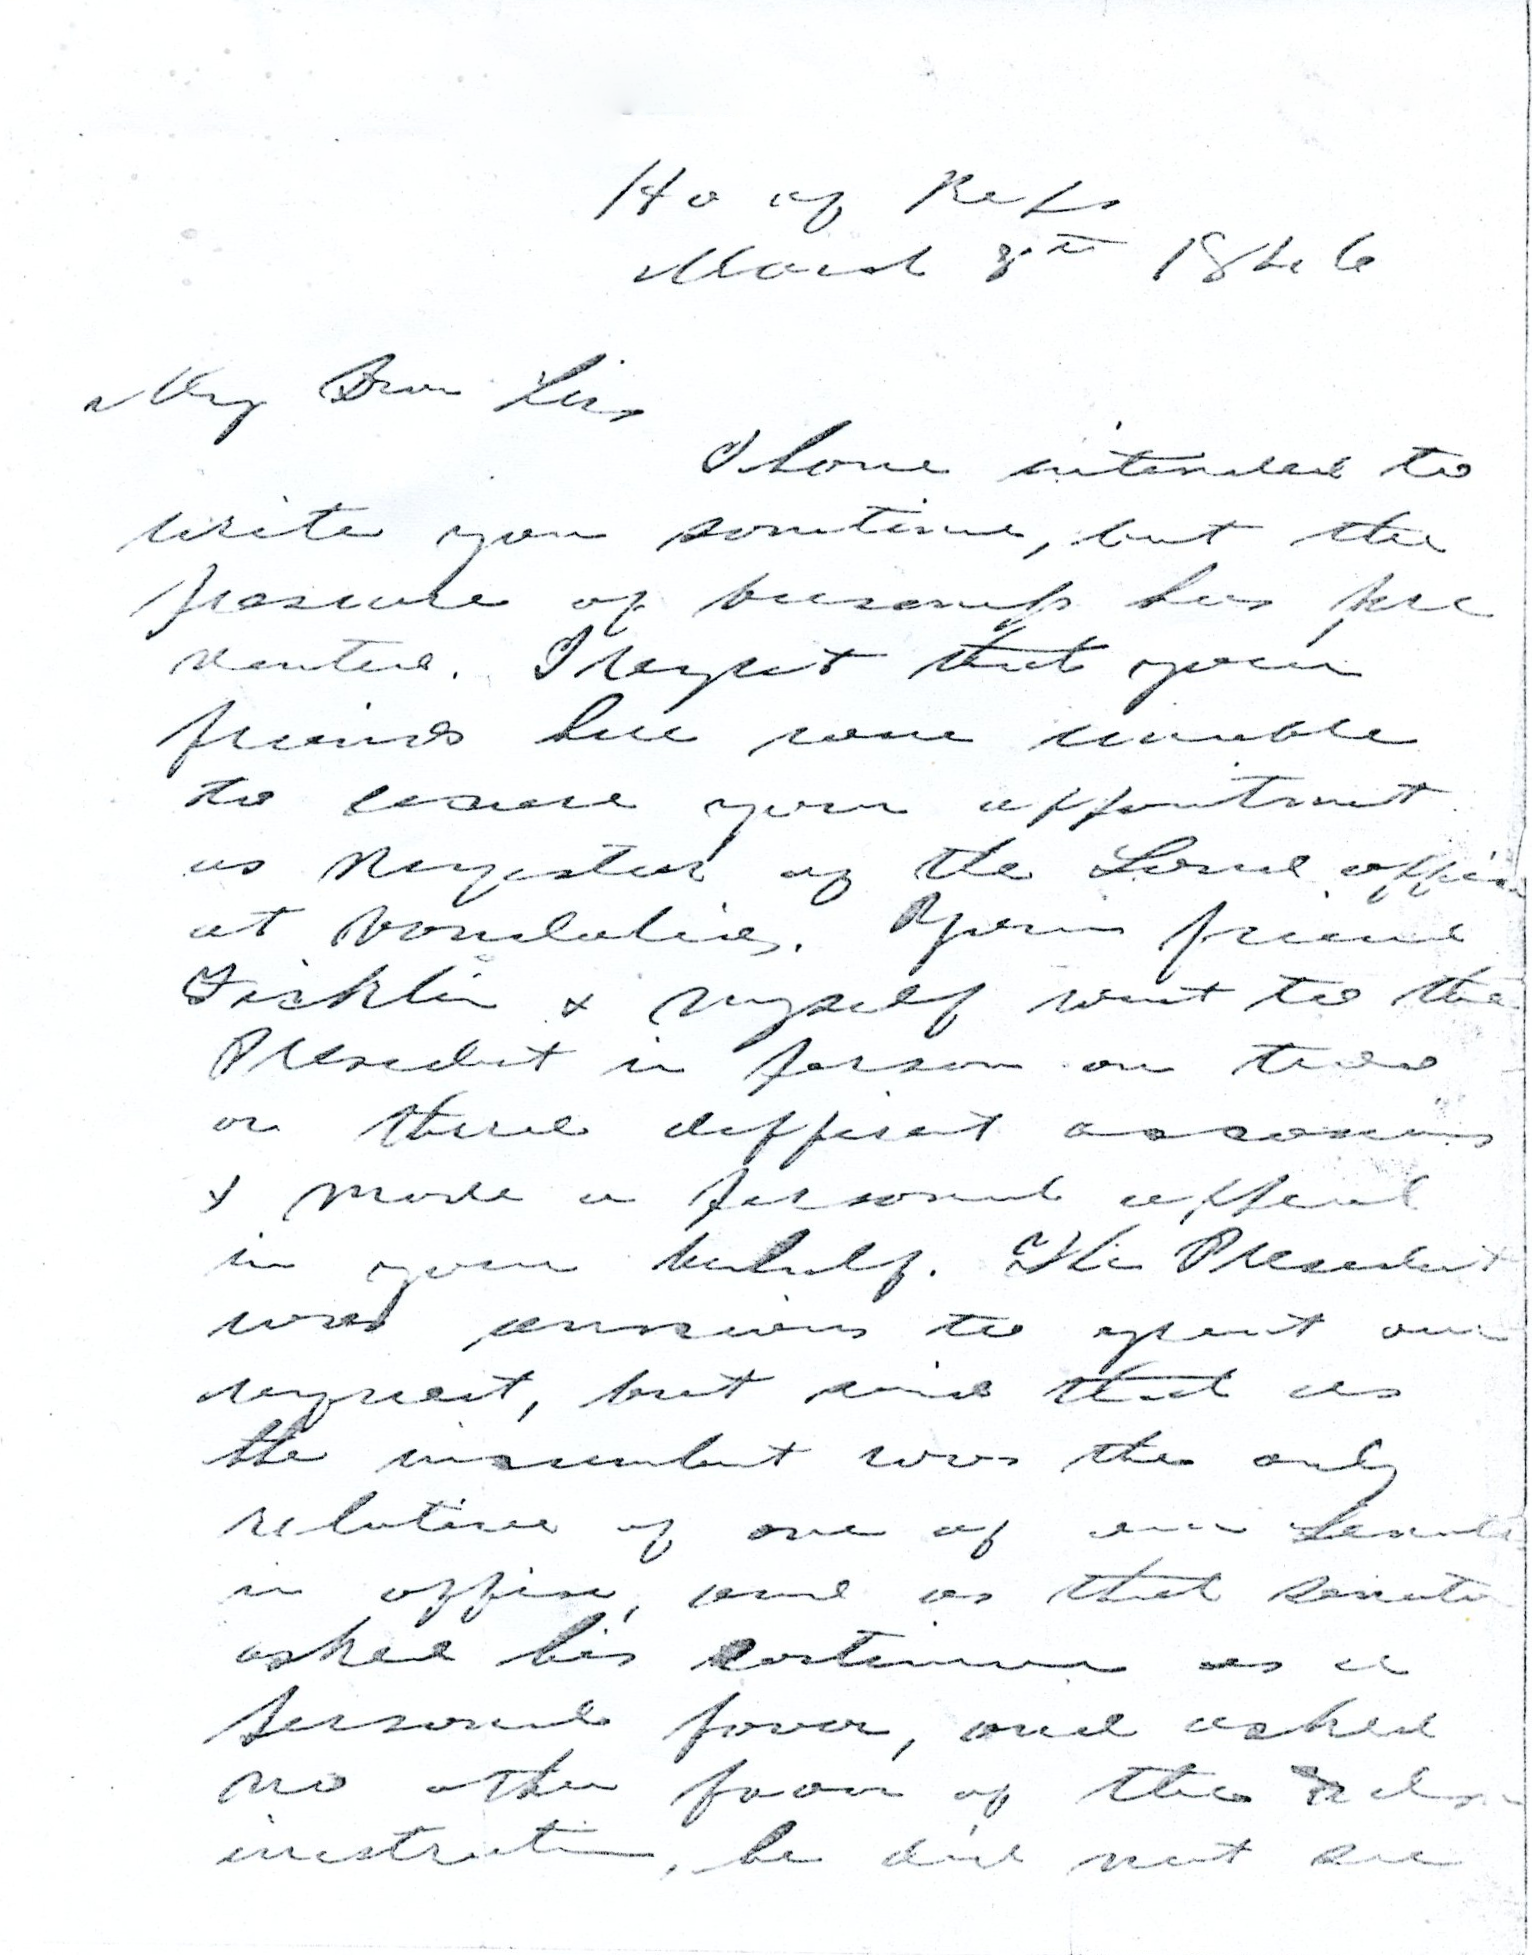 Ho of Reps
March 8th 1846
My Dear Sir
I have intended to
write you sometime, but the
pressure of business has pre
vented. I regret that your
friends here were unable
to secure your appointment
as Register of the Land office
at Vandalia. Your friend
Ficklin & myself went to the
President in person on two
or three different occasions
& made a personal appeal
in your behalf. The President
was anxious to grant our
request, but said that as
the incumbent was the only
relative of one of our Senators
in office, and as that senator
asked his continuance as a
personal favor, and asked
no other favor of the Adm
inistration, he did not see